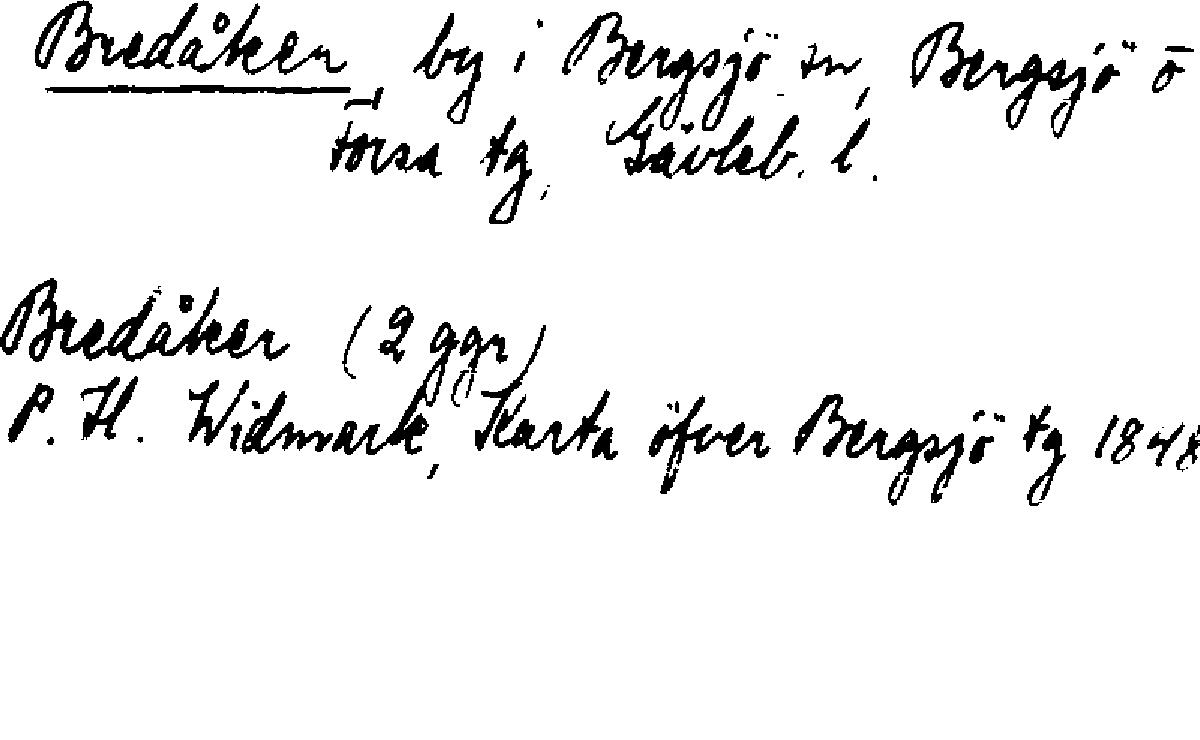 Bredåker, by i Bergsjö sn, Bergsjö o
Forsa tg, Gävleb. l.
Bredåker (2 ggr)
P. H. Widmark, Karta öfver Bergsjö tg 1848